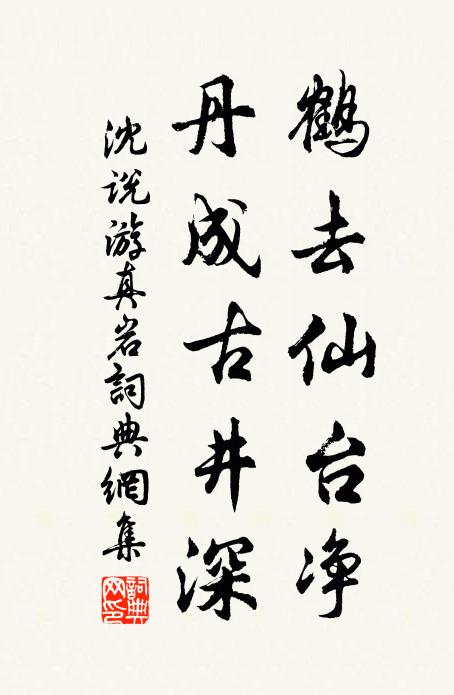 鹤去仙台净
丹成古井深
沈说游真岩詞典網集
詞典网印